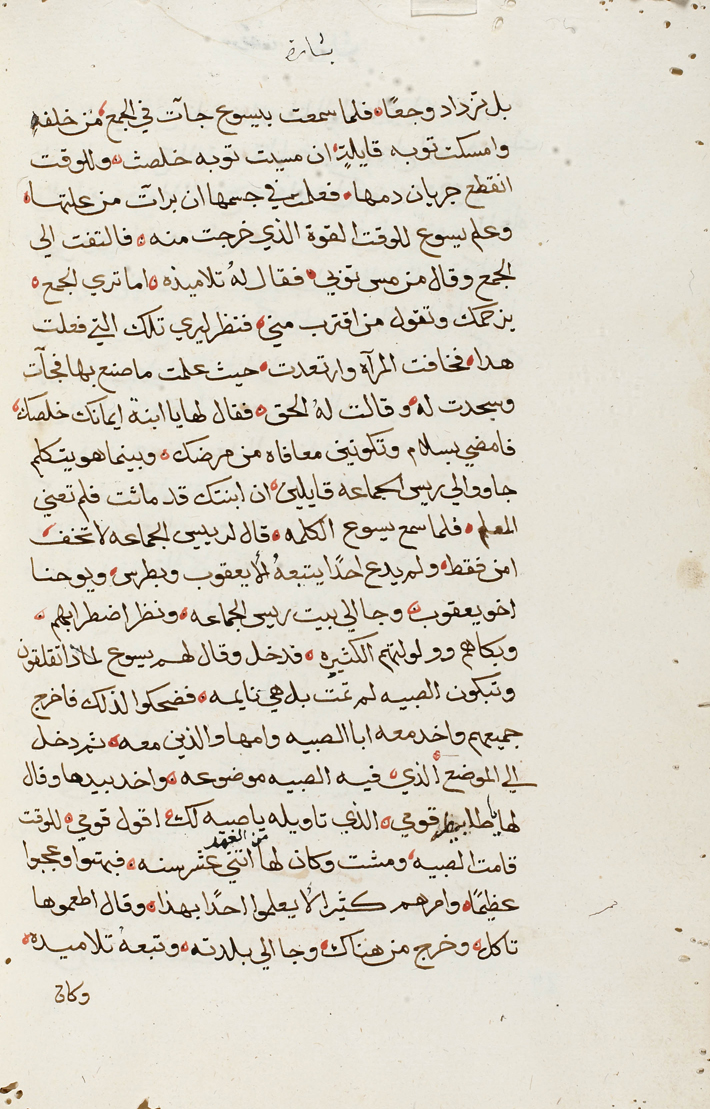 بشارة
بل تزداد وجعًا فلما سمعت بيسوع جآت في الجمع من خلفه
وامسكت توبه قايلةٍ ان مسيت توبه خلصت وللوقت
انقطع جريان دمها فعلمت في جسمها ان برات من علتها
وعلم يسوع للوقت القوة الذي خرجت منه فالتفت الي
الجمع وقال من مس توبي فقال لهُ تلاميذه اما تري الجمع
يزحمك وتقول من اقترب مني فنظر ليري تلك التي فعلت
هدا فخافت المرآه وارتعدت حيث علمت ما صنع بها فجآت
وسجدت له وقالت لهُ الحق فقال لها يا ابنة ايمانك خلصك
فامضي بسلام وتكونين معافاه من مرضك وبينما هو يتكلم
جاووا الي ريس الجماعه قايلين ان ابنتك قد ماتت فلم تعني
المعلم فلما سمع يسوع الكلمه قال لرييس الجماعه لا تخف
امن فقط ولم يدع احدًا يتبعهُ الا يعقوب وبطرس ويوحنا
اخو يعقوب وجا الي بيت ريس الجماعه ونظر اضطرابهم
وبكاهم وولولتهم الكثيره فدخل وقال لهم يسوع لماذا تقلقون
وتبكون الصبيه لم تمت بل هي نايمه فضحكوا لذلك فاخرج
جميعهم واخد معه ابا الصبيه وامها والذين معه ثم دخل
الي الموضع الذي فيه الصبيه موضوعه واخد بيدها وقال
لها يا طلا قومي الذي تاويله يا صبيه لك اقول قومي للوقت
قامت الصبيه ومشت وكان لها من العمر اتني عشر سنه فبهتوا وعجبوا
عظيمًا وامرهم كثيرا الا يعلموا احدًا بهذا وقال اطعموها
تاكل وخرج من هناك وجا الي بلدته وتبعهُ تلاميده
وكان